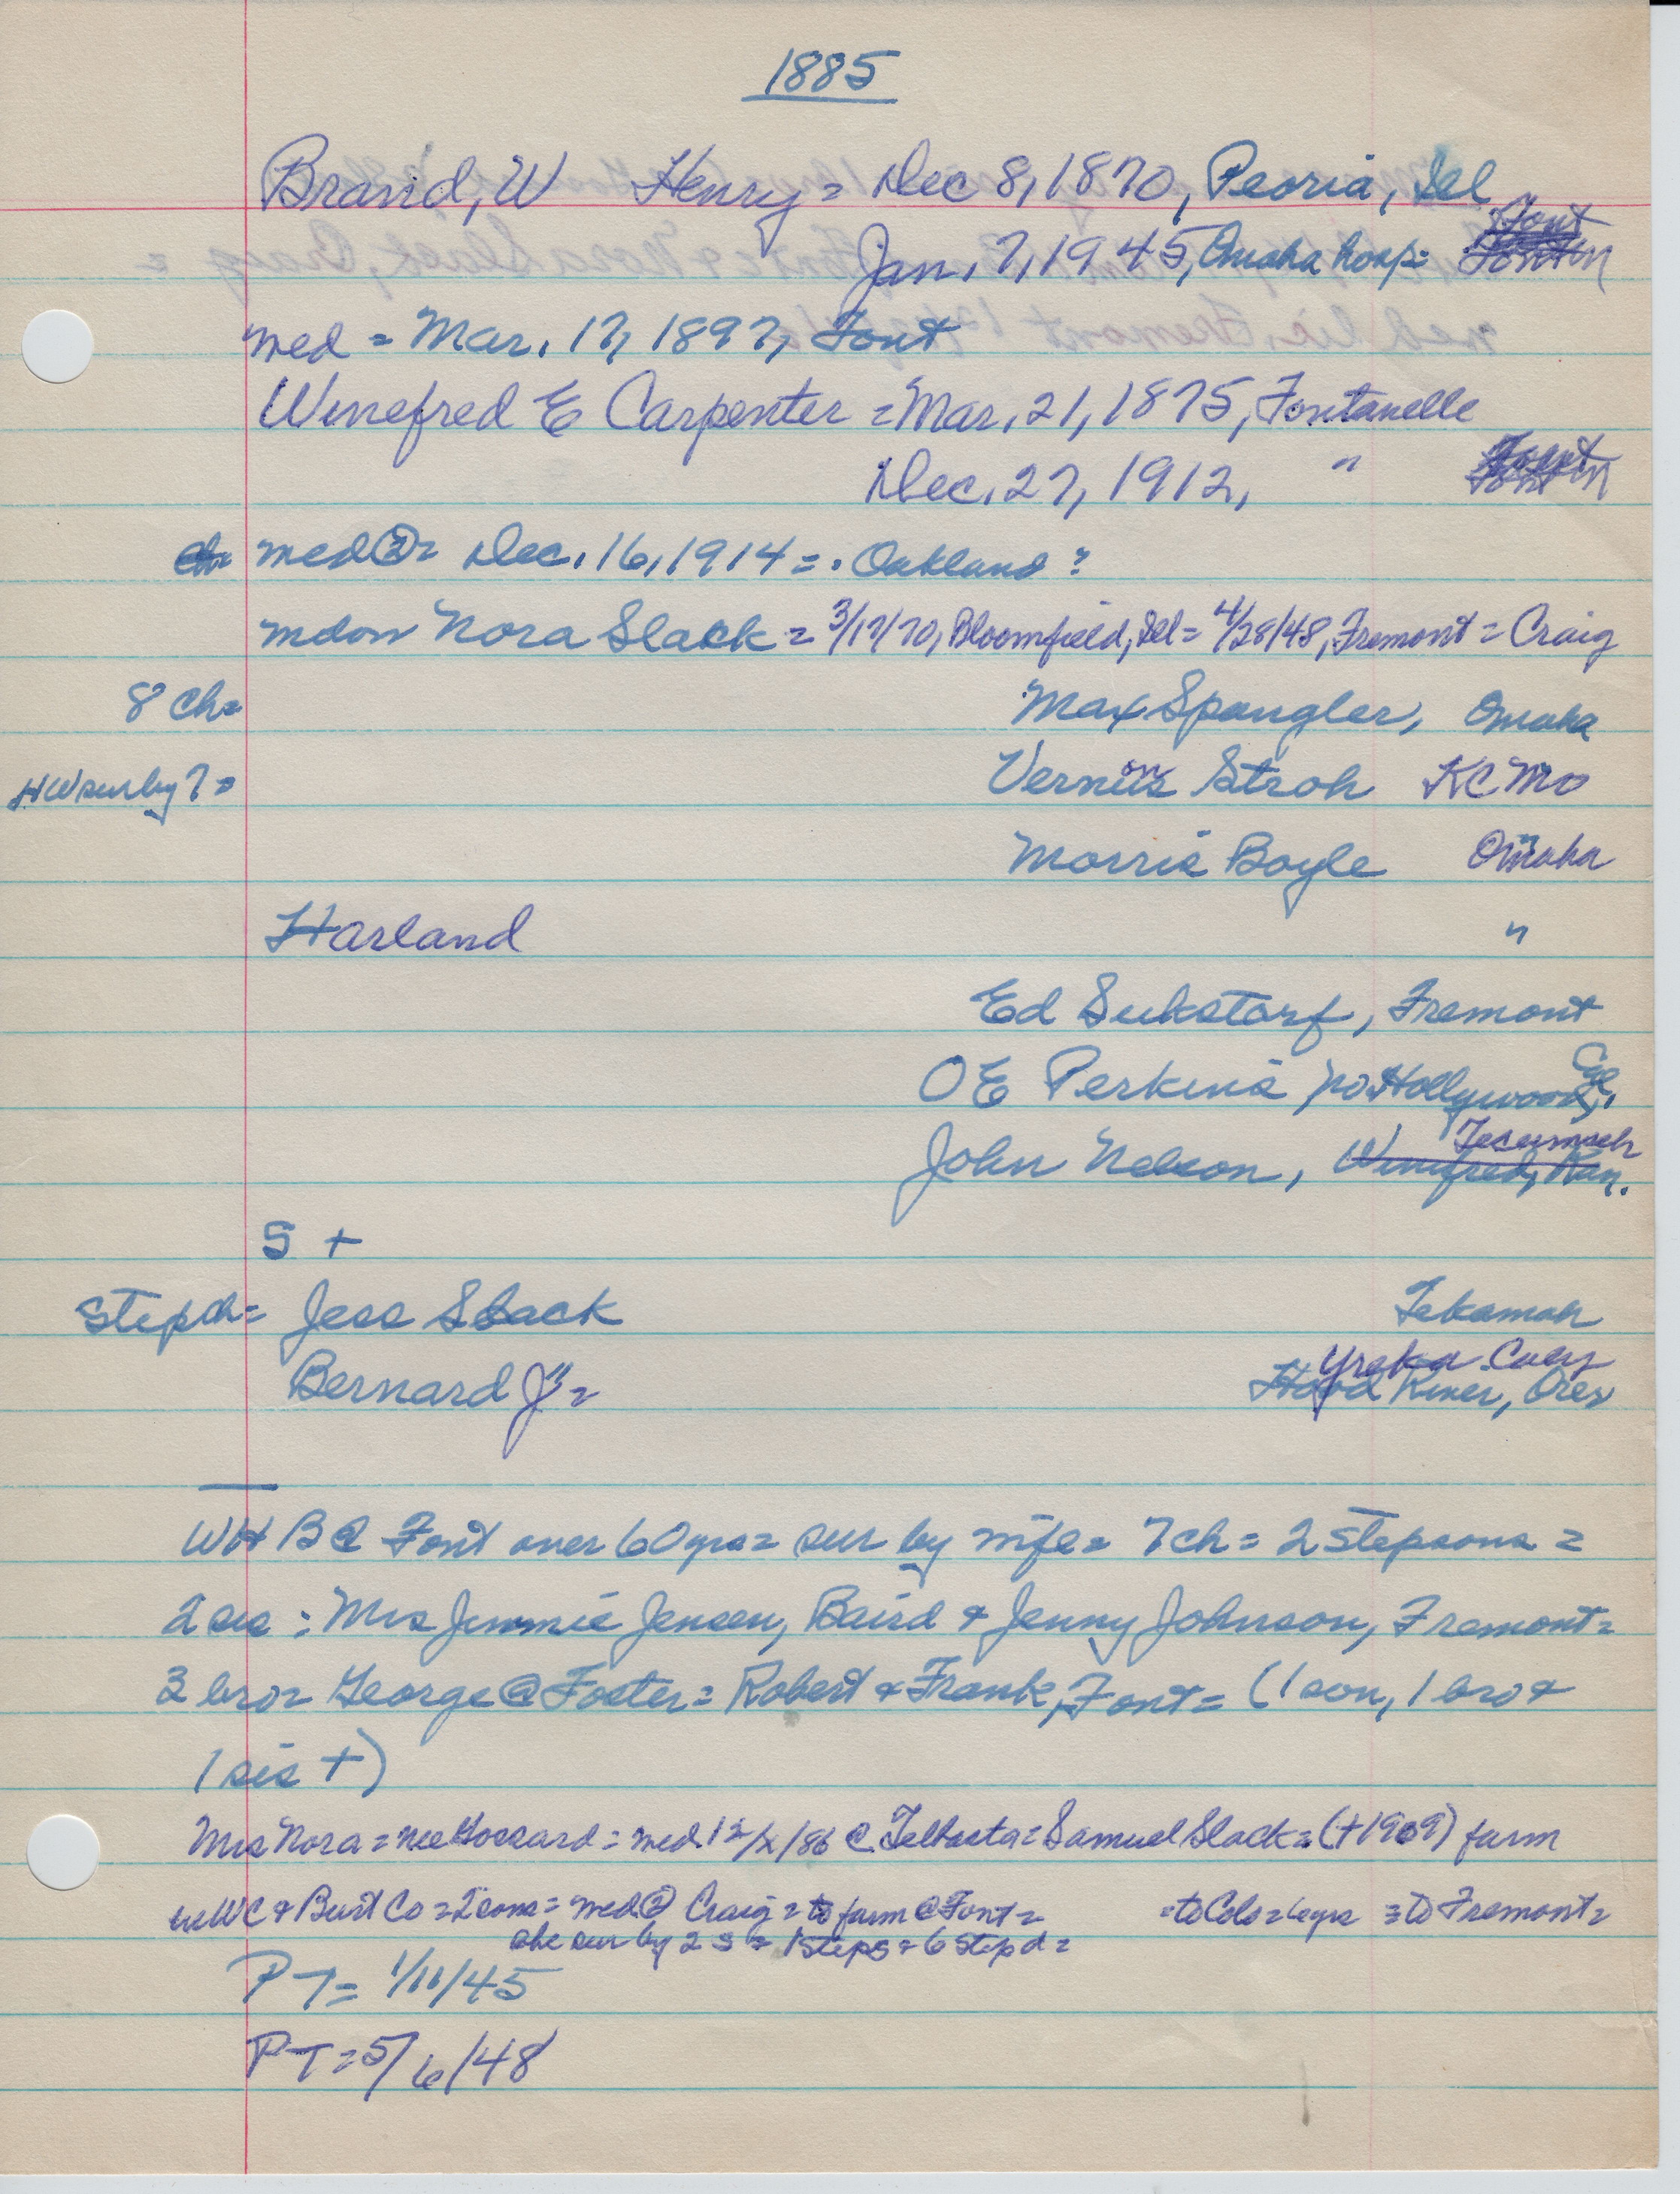 1885
Brand, W Henry = Dec 8, 1870, Peoria, Ill
Jan. 7, 1945, Omaha hosp = Font
med = Mar. 17, 1897, Font
Winefred E Carpenter = Mar. 21, 1875, Fontanelle
Dec. 27, 1912, "
ch= med② = Dec. 16, 1914 = . Oakland ?
Nora Slack = 3/17/70, Bloomfield, Ill = 4/28/48, Fremont = Craig
8 ch= Max Spangler, Omaha
HW sur by 7 = Stroh KC Mo
Morris Boyle Omaha
Harland "
Ed Sukstorf, Fremont
OE Perkins no Hollywood, Cal.
Tecumseh
John Nelson, Winefred, Kan.
5 +
Step ch= Jess Slack Tekamah
Yreka
Bernard J" = Hood River, Ore
WHB @ Font over 60 yrs = sur by wife = 7 ch = 2 stepsons =
2 sis : Mrs Jimmie Jensen, Baird & Jenny Johnson, Fremont =
3 bro = George @ Foster = Robert & Frank, Font = (1 son, 1 bro &
1 sis +)
Mrs Nora = nee = med 12/x/86 @ = Samuel Slack = (+1909) farm
in WC & Burt Co = 2 sons = med② Craig = to farm @ Font = = to Colo = 6 yrs = to Fremont =
she sur by 2 s = 1 steps = 6 step d =
PT = 1/11/45
PT = 5/6/48